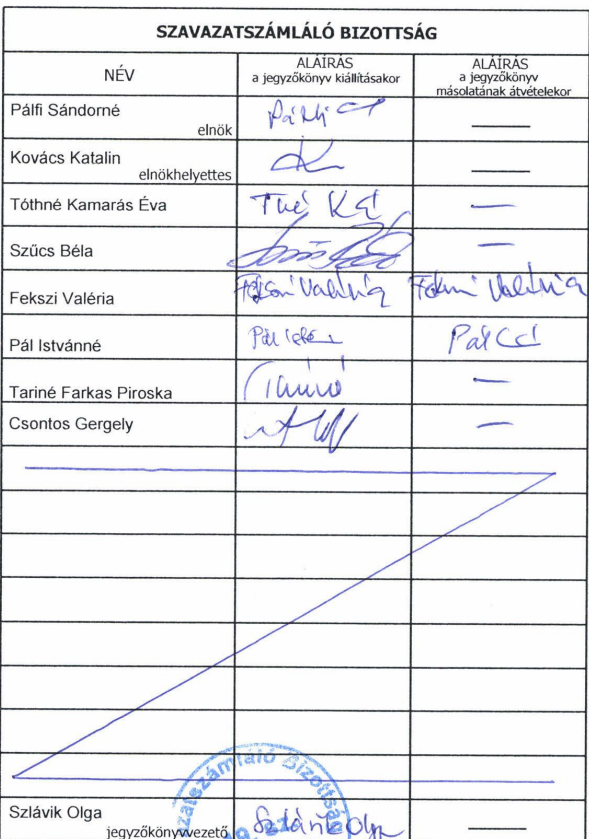 SZAVAZATSZÁMLÁLÓ BIZOTTSÁG
NÉV
ALÁÍRÁS
a jegyzőkönyv kiállításakor
ALÁÍRÁS
a jegyzőkönyv
másolatának átvételekor
Pálfi Sándorné
elnök
Kovács Katalin
elnökhelyettes
Tóthné Kamarás Éva
Szűcs Béla
Fekszi Valéria
Pál Istvánné
Tariné Farkas Piroska
Csontos Gergely
Szlávik Olga
jegyzőkönyvvezető
Szlávik Olga